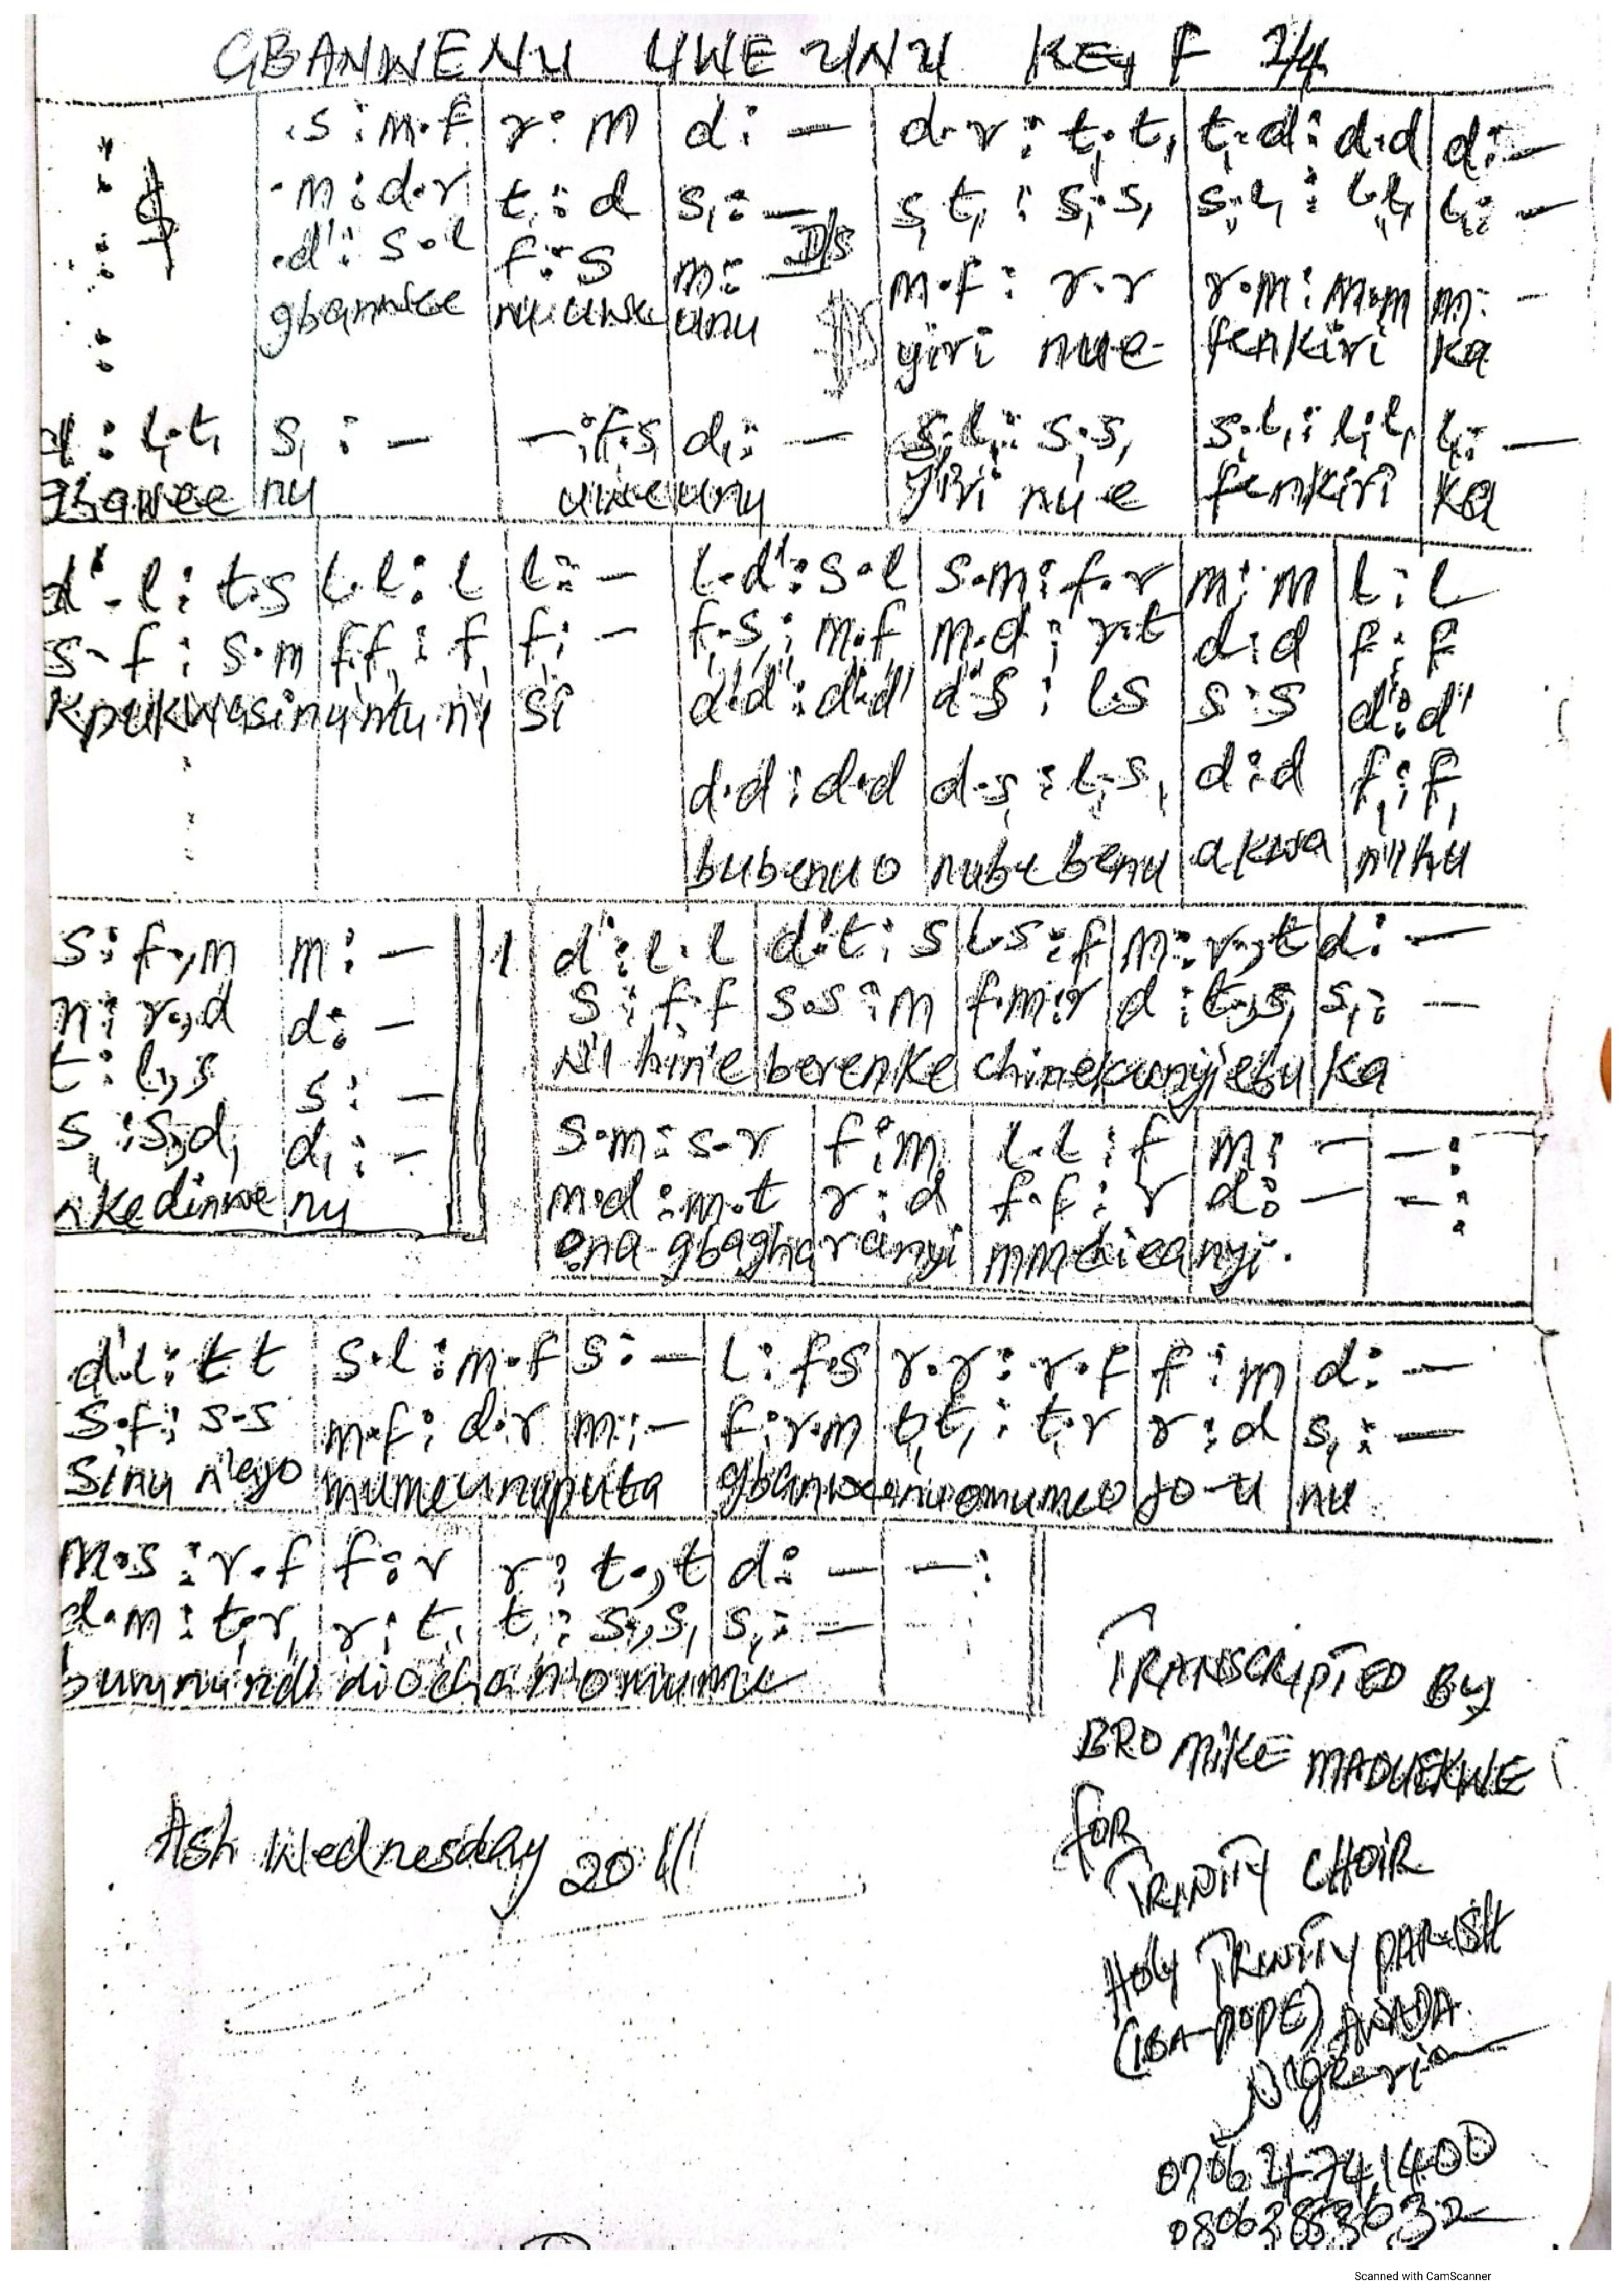 GBANWENU UWE UNU KEY F 2/4
.s : m.f | r : m | d : — | d.r : t₁.t₁ | t₁.d : d.d | d : —
.m : d.r | t₁ : d | s₁ : — | s₁ t₁ : s₁.s₁ | s₁.l₁ : l₁.l₁ | l₁ : —
.d' : s.l | f : s | m : — D/S | m.f : r.r | r.m : m.m | m : —
gbanwee nu uwe unu yiri nu e fenkiri ka
d : l₁.t₁ | s₁ : — | — : f₁.s₁ | d₁ : — | s₁.l₁ : s₁.s₁ | s₁.l₁ : l₁.l₁ | l₁ : —
Gbanwee nu uwe unu yiri nu e fenkiri ka
d'.l : t.s | l.l : l | l : — | l.d' : s.l | s.m : f.r | m : m | l : l
s.f : s.m | f.f : f | f : — | f.s : m.f | m.d : r.t | d : d | f : f
kpukwasinu ntu n'i si d'.d' : d'.d' | d'.s : l.s | s : s | d' : d'
d.d : d.d | d.s₁ : l₁.s₁ | d : d | f₁ : f₁
bubenu o nubu benu akwa n'ihu
s : f.,m | m : — | 1 d' : l.l | d'.t : s | l.s : f | m : r.,t | d : —
m : r.,d | d : — | s : f.f | s.s : m | f.m : r | d : t₁.,s₁ | s₁ : —
t : l.,s | s : — N'ihin'e berenke chinekeanyi ebu ka
s₁ : s₁.,d₁ | d₁ : — | s.m : s.r | f : m | l.l : f | m : — | — :
nkedinwe nu m.d : m.t | r : d | f.f : r | d : — | — :
ona-gbaghara anyi mmehieanyi.
d'.l : t t | s.l : m.f | s : — | l : f.s | r.r : r.f | f : m | d : —
s.f : s.s | m.f : d.r | m : — | f : r.m | t₁.t₁ : t₁.r | r : d | s₁ : —
Sinu n'ago mumeunuputa gbanwenuomumeo jo-u nu
m.s : r.f | f : r | r : t.,t | d : — | — :
d.m : t.r | r : t₁ | t₁ : s₁.,s₁ | s₁ : — | — :
burunundi diocha n'omume
TRANSCRIPTED BY
BRO MIKE MADUEKWE
Ash Wednesday 2011
FOR
TRINITY CHOIR
HOLY TRINITY PARISH
(IBA-POPE) AWADA
Nigeria
070624741400
08063853632
Scanned with CamScanner